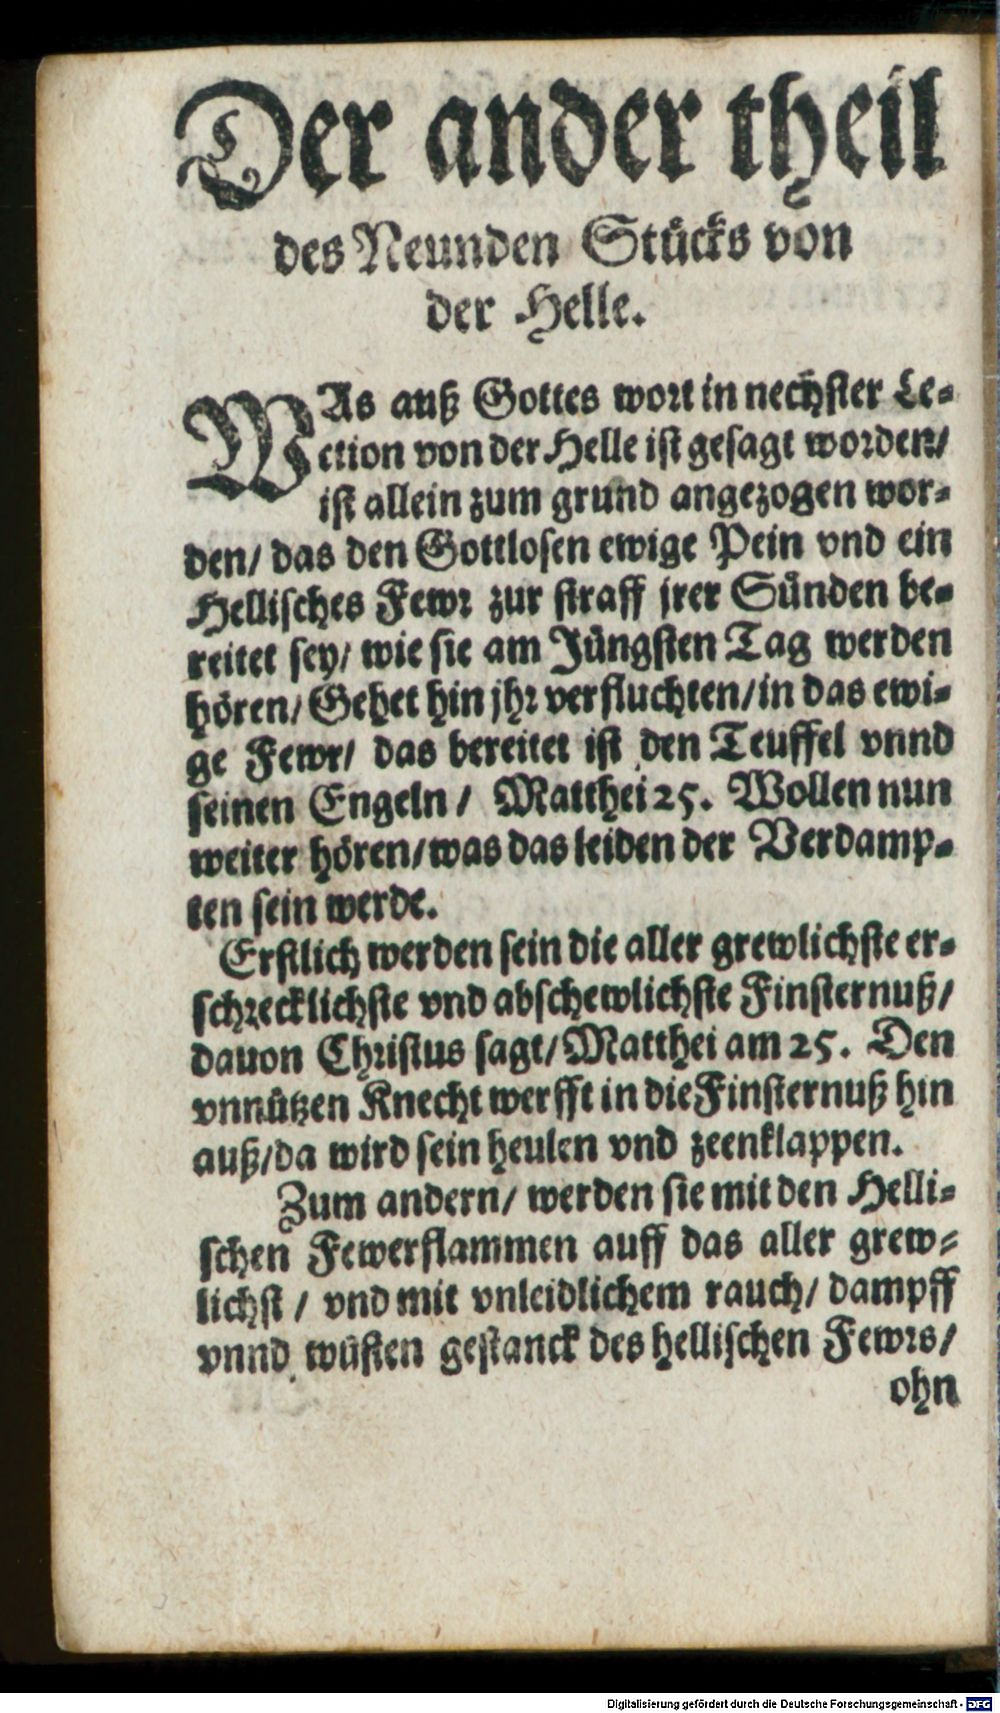 Der ander theil
des Neunden Stücks von
der Helle.
WAs auß Gottes wort in nechster Le-
ction von der Helle ist gesagt worden/
ist allein zum grund angezogen wor-
den/ das den Gottlosen ewige Pein vnd ein
Hellisches Fewr zur straff jrer Sünden be-
reitet sey/ wie sie am Jüngsten Tag werden
hören/ Gehet hin jhr verfluchten/ in das ewi-
ge Fewr/ das bereitet ist den Teuffel vnnd
seinen Engeln / Matthei 25. Wollen nun
weiter hören/ was das leiden der Verdamp-
ten sein werde.
Erstlich werden sein die aller grewlichste er-
schrecklichste vnd abschewlichste Finsternuß/
dauon Christus sagt/ Matthei am 25. Den
vnnützen Knecht werfft in die Finsternuß hin
auß/ da wird sein heulen vnd zeenklappen.
Zum andern/ werden sie mit den Helli-
schen Fewerflammen auff das aller grew-
lichst / vnd mit vnleidlichem rauch/ dampff
vnnd wüsten gestanck des hellischen Fewrs/
ohn
Digitalisierung gefördert durch die Deutsche Forschungsgemeinschaft - DFG